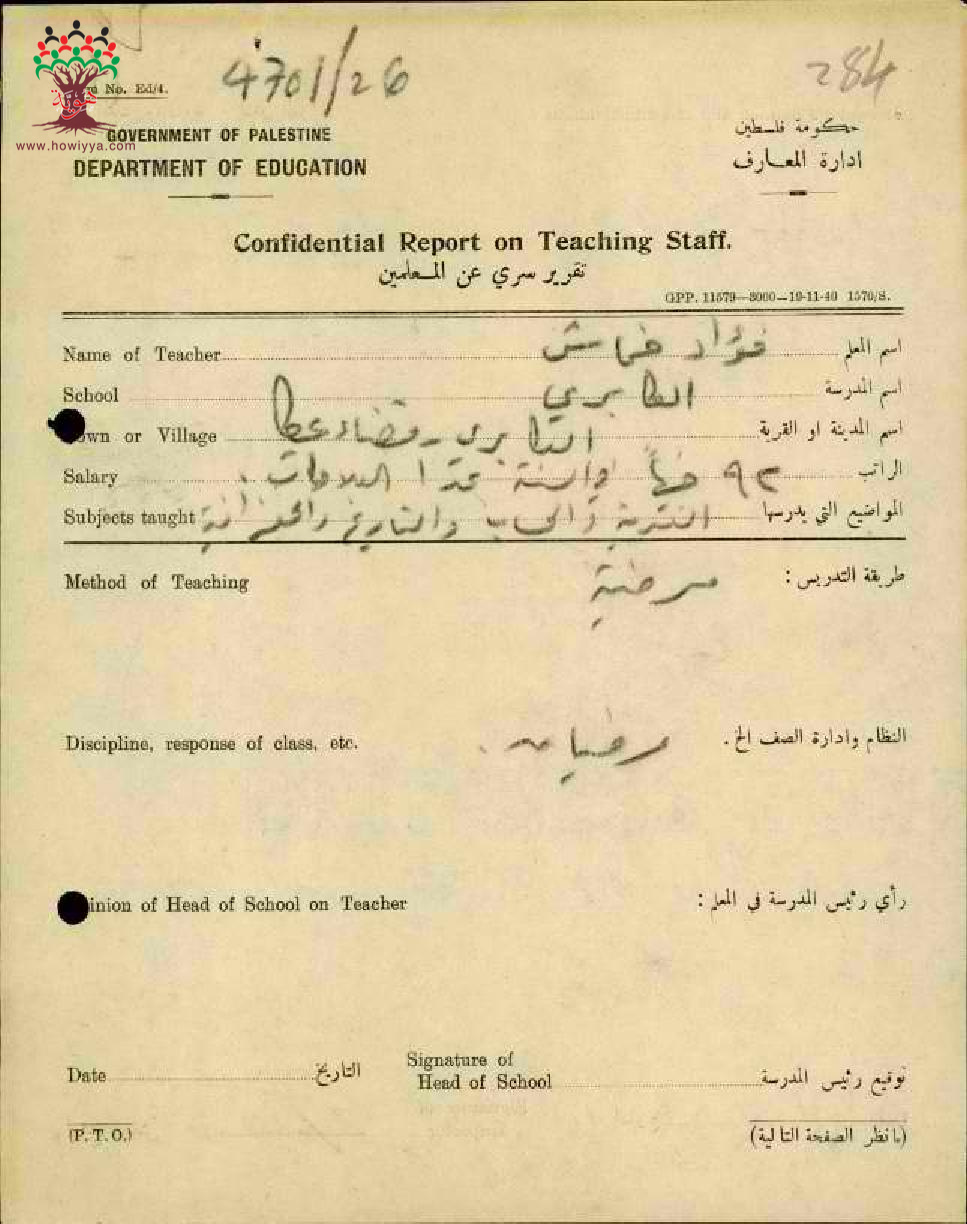 4701/26
284
No. Ed/4.
www.howiyya.com
GOVERNMENT OF PALESTINE
حكومة فلسطين
DEPARTMENT OF EDUCATION
ادارة المعارف
Confidential Report on Teaching Staff.
تقرير سري عن المعلمين
GPP. 11579—3000—19-11-40 1570/S.
Name of Teacher فؤاد خماش اسم المعلم
School الكابري اسم المدرسة
own or Village الكابري - قضاء عكا اسم المدينة او القرية
Salary ٩٢ جنيهاً السنة عدا العلاوات الراتب
Subjects taught والحساب والتاريخ والجغرافية المواضيع التي يدرسها
Method of Teaching مرضية طريقة التدريس :
Discipline, response of class, etc. مرضيان النظام وادارة الصف الخ .
inion of Head of School on Teacher رأي رئيس المدرسة في المعلم :
Date التاريخ Signature of Head of School توقيع رئيس المدرسة
(P. T. O.) (بانظر الصفحة التالية)